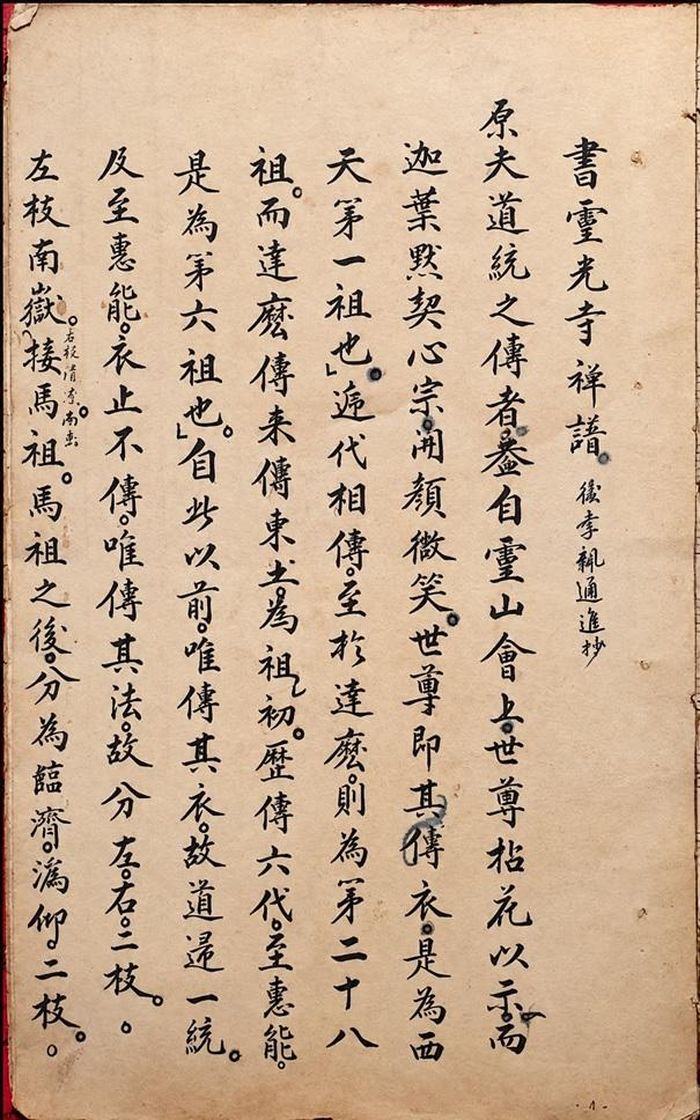 書靈光寺禅譜。後李飄通進抄
原夫道統之傳者。盖自靈山會上。世尊拈花以示。而
迦葉默契心宗。開顏微笑。世尊即其傳衣。是為西
天第一祖也。遞代相傳。至於達麽。則為第二十八
祖。而達麽傳来傳東土。為祖初。歷傳六代。至惠能。
是為第六祖也。自此以前。唯傳其衣。故道歸一統。
及至惠能。衣止不傳。唯傳其法。故分左。右。二枝。。
左枝南嶽。右枝清原。南嶽接馬祖。馬祖之後。分為臨濟。溈仰。二枝。。